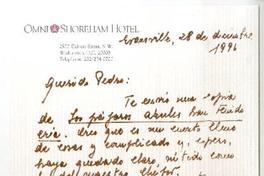 OMNI SHOREHAM HOTEL
2500 Calvert Street, N.W.
Washington, D.C. 20008
Telephone: 202/234-0700
Evansville, 28 de diciembre
1996
Querido Pedro:
Te envío una copia
de Los pájaros azules
Creo que es un cuento lleno
de cosas y complicado y, espero,
haya quedado claro, nítido como